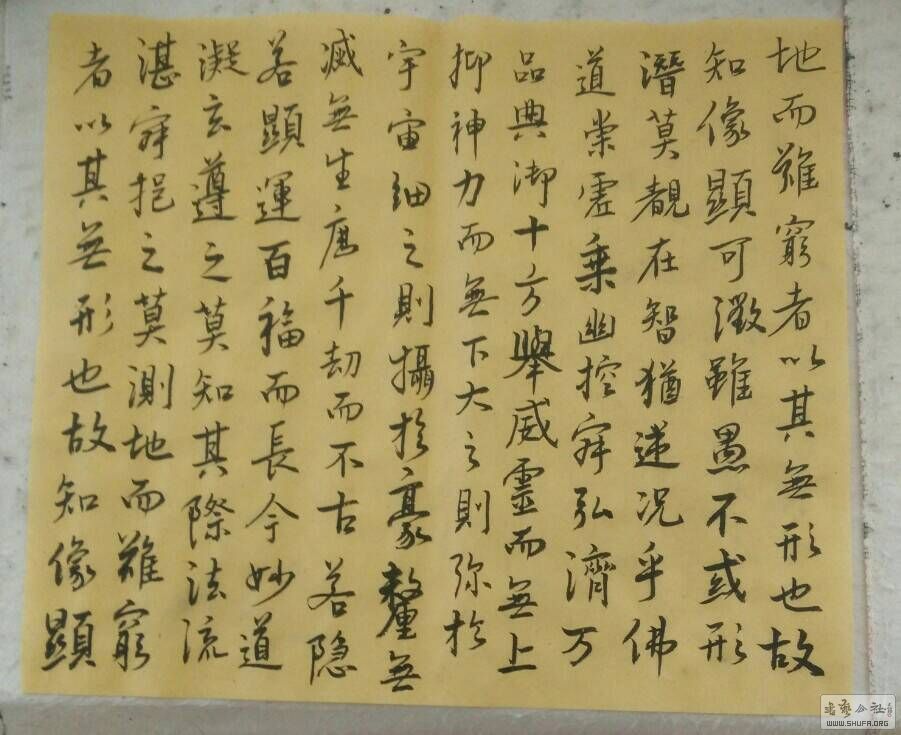 地而難窮者以其無形也故
知像顯可徵雖愚不惑形
潛莫覩在智猶迷況乎佛
道崇虛乗幽控寂弘濟万
品典御十方舉威靈而無上
抑神力而無下大之則弥於
宇宙細之則攝於豪釐無
滅無生歷千劫而不古若隐
若顯運百福而長今妙道
凝玄遵之莫知其際法流
湛寂挹之莫測地而難窮
者以其無形也故知像顯
WWW.SHUFA.ORG